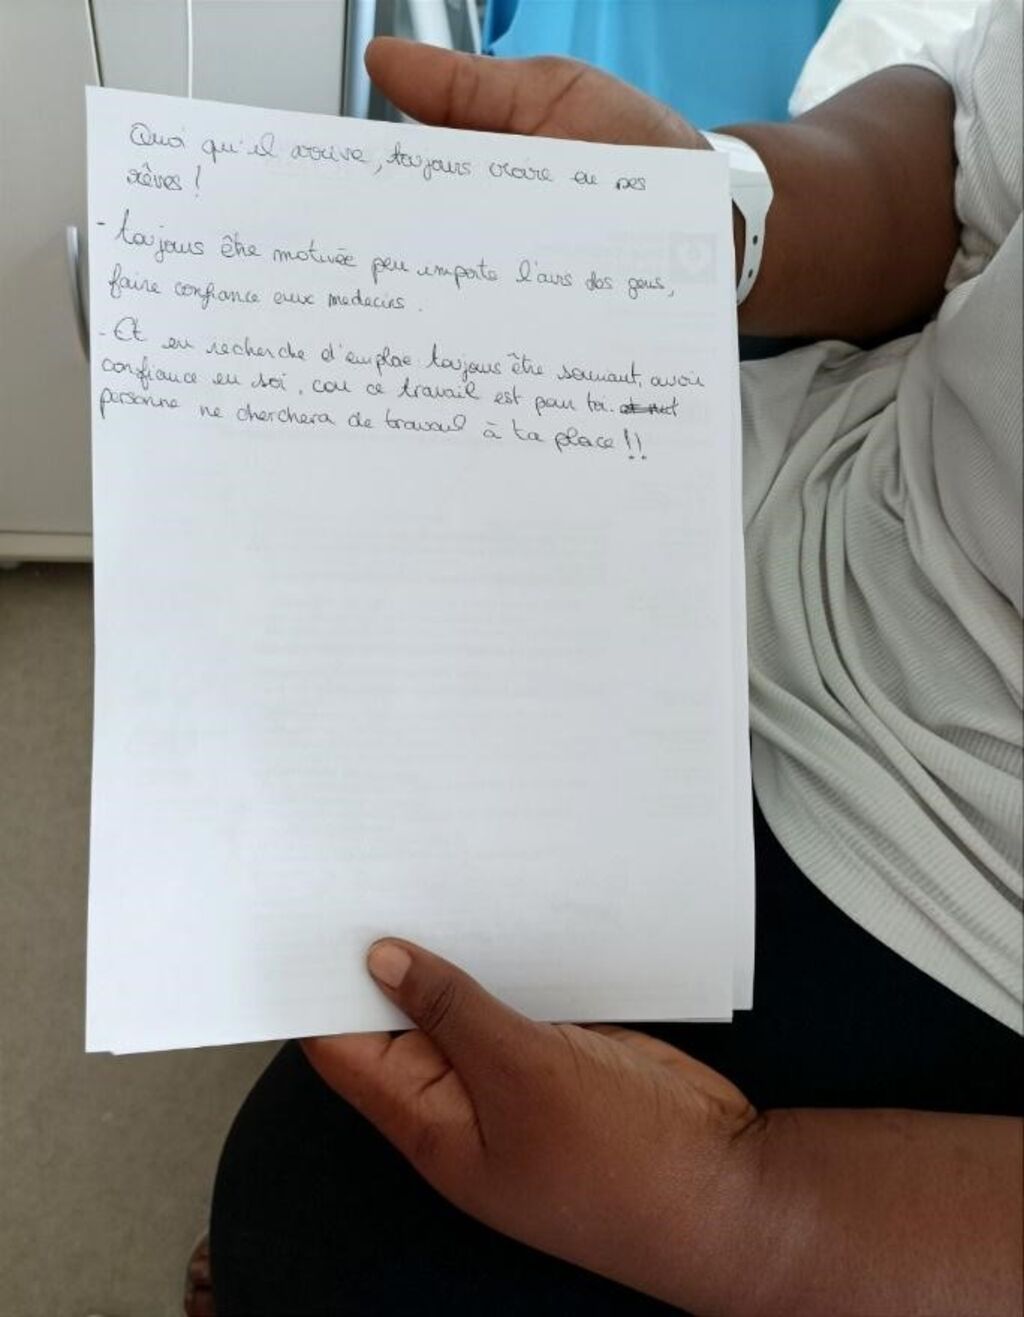 Quoi qu'il arrive, toujours croire en ses
rêves !
- toujours être motivée peu importe l'avis des gens,
faire confiance aux medecins.
- Et en recherche d'emploe toujours être souriant, avoir
confiance en soi, car ce travail est pour toi.
personne ne cherchera de travail à ta place !!